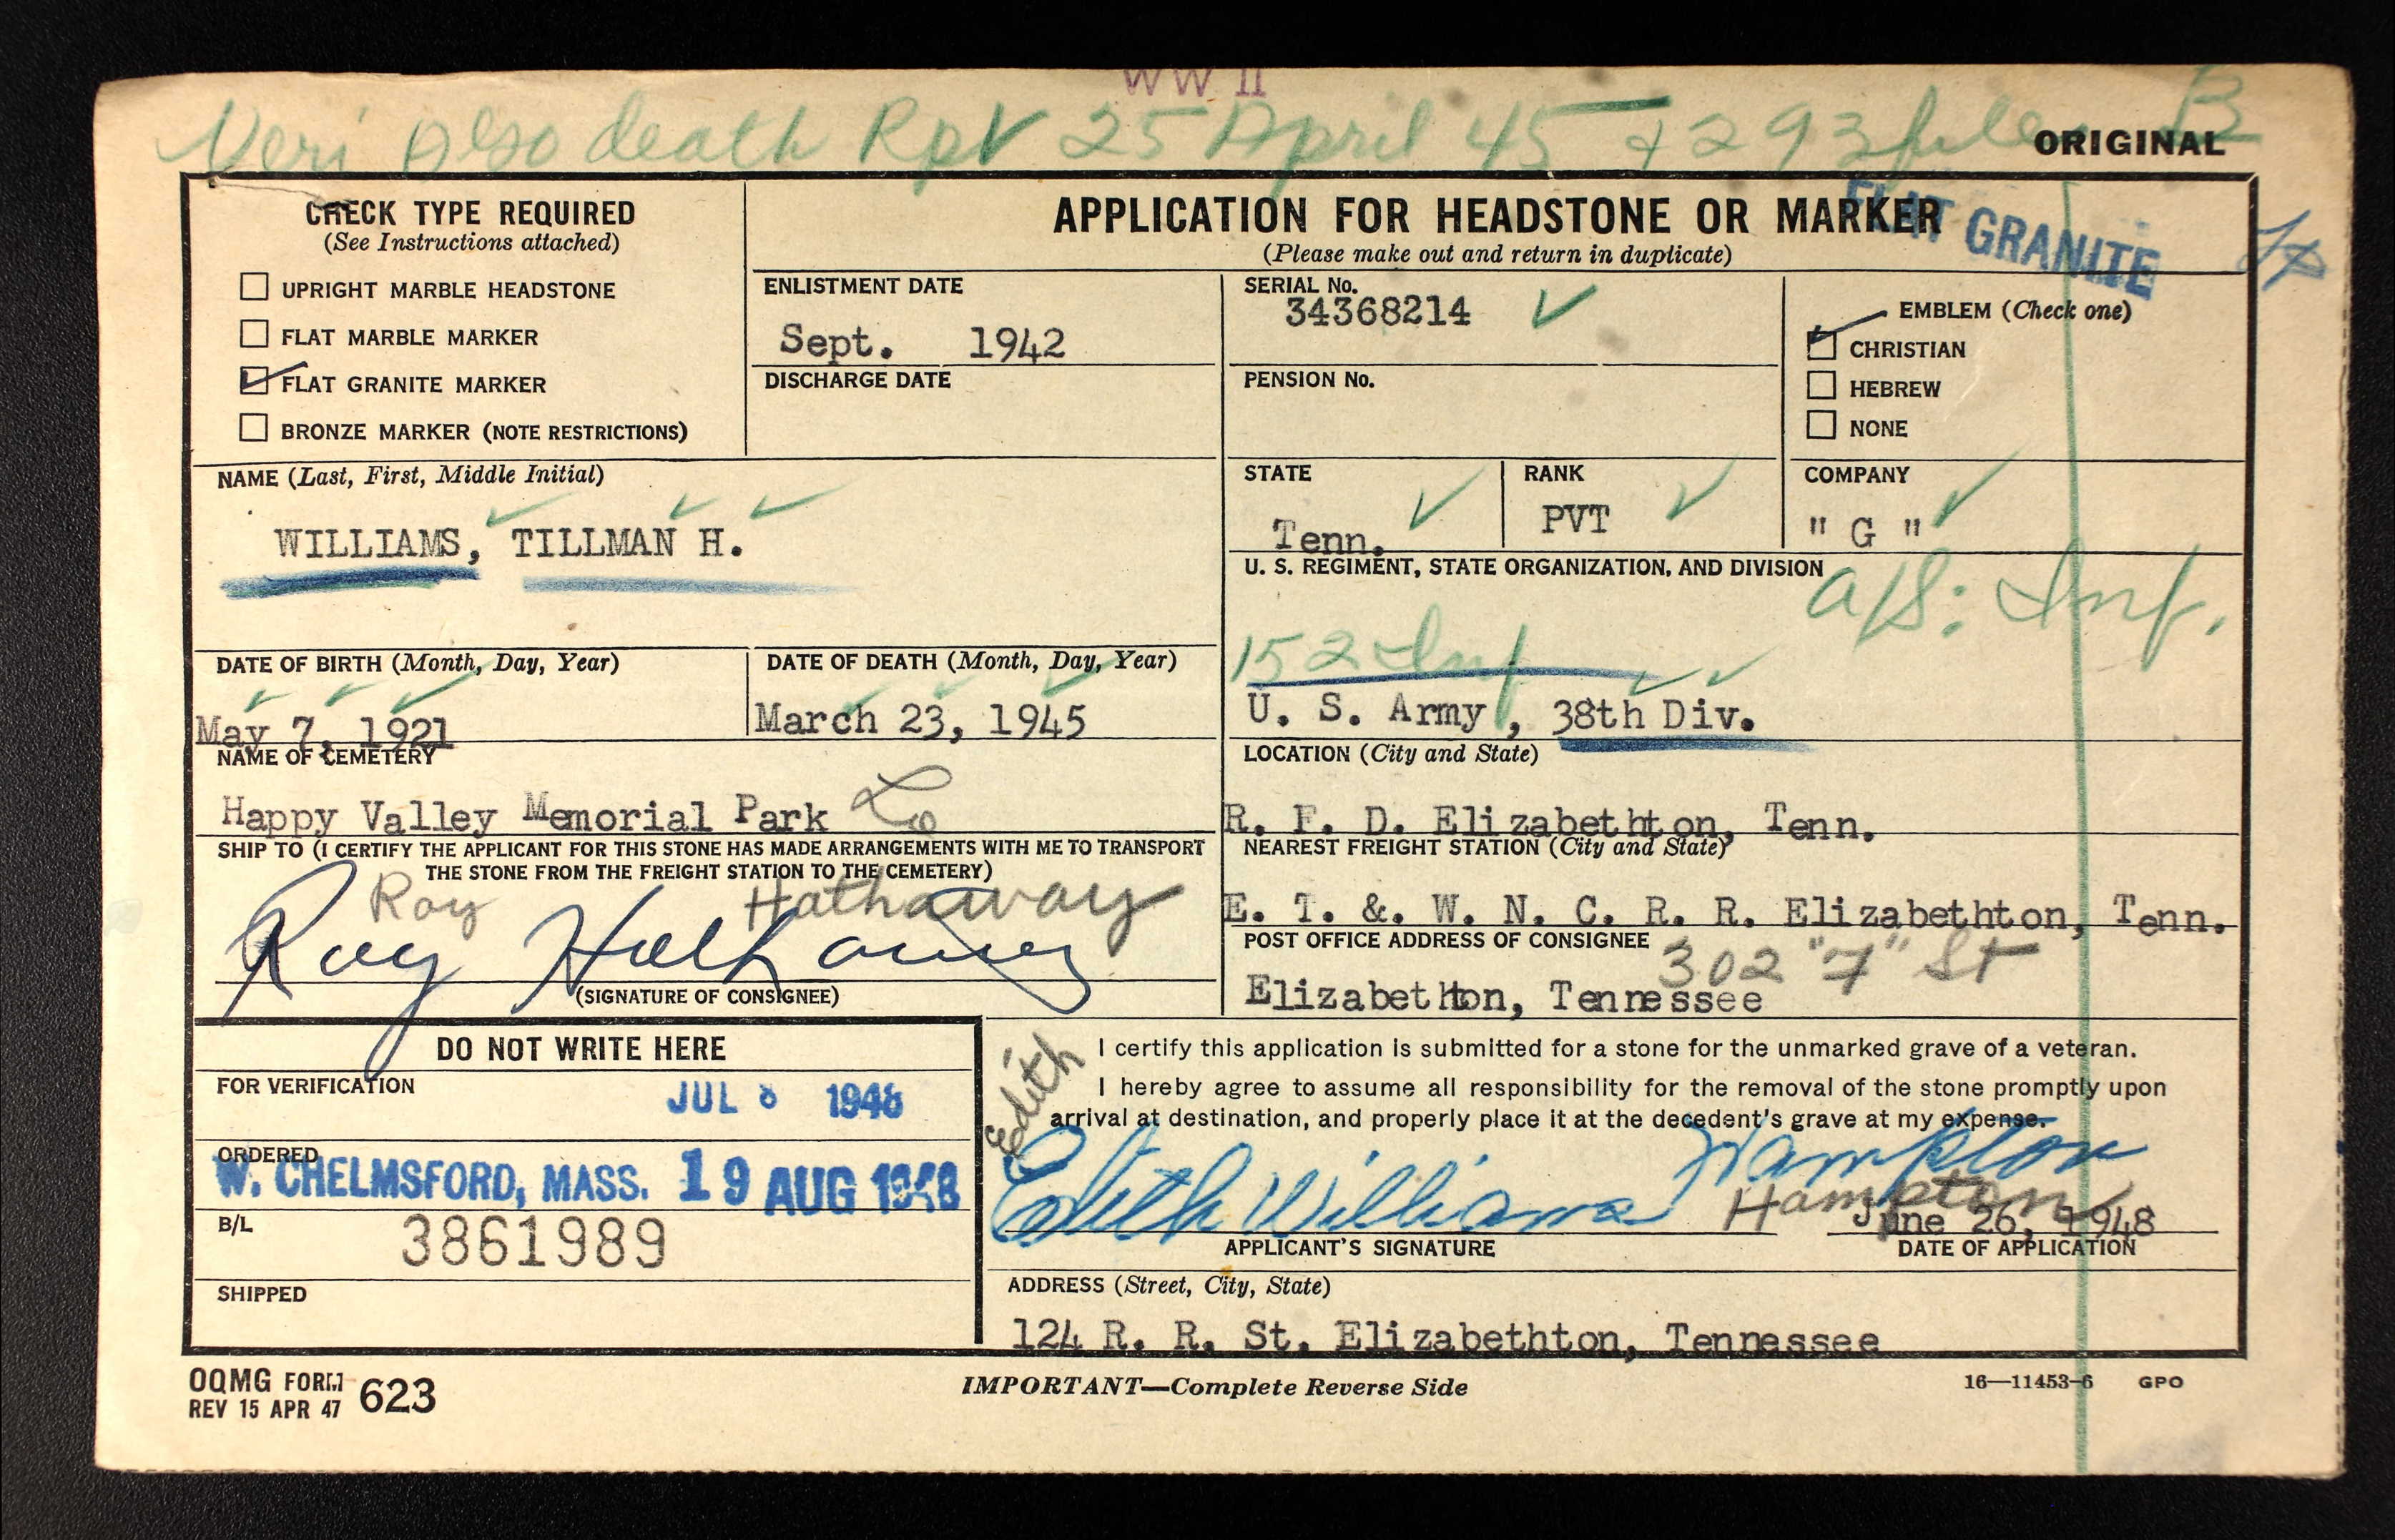 WW II
Veri Also death Rpt 25 April 45 + 293 file B
ORIGINAL
CHECK TYPE REQUIRED
(See Instructions attached)
UPRIGHT MARBLE HEADSTONE
FLAT MARBLE MARKER
FLAT GRANITE MARKER
BRONZE MARKER (NOTE RESTRICTIONS)
APPLICATION FOR HEADSTONE OR MARKER
(Please make out and return in duplicate)
FLAT GRANITE
ENLISTMENT DATE
Sept. 1942
DISCHARGE DATE
SERIAL No.
34368214
PENSION No.
EMBLEM (Check one)
CHRISTIAN
HEBREW
NONE
NAME (Last, First, Middle Initial)
WILLIAMS, TILLMAN H.
STATE
Tenn.
RANK
PVT
COMPANY
" G "
U. S. REGIMENT, STATE ORGANIZATION, AND DIVISION
a/s: Inf.
152 Inf
U. S. Army, 38th Div.
DATE OF BIRTH (Month, Day, Year)
May 7, 1921
DATE OF DEATH (Month, Day, Year)
March 23, 1945
NAME OF CEMETERY
Happy Valley Memorial Park
LOCATION (City and State)
R. F. D. Elizabethton, Tenn.
SHIP TO (I CERTIFY THE APPLICANT FOR THIS STONE HAS MADE ARRANGEMENTS WITH ME TO TRANSPORT
THE STONE FROM THE FREIGHT STATION TO THE CEMETERY)
Roy Hathaway
Roy Hathaway
(SIGNATURE OF CONSIGNEE)
NEAREST FREIGHT STATION (City and State)
E. T. &. W. N. C. R. R. Elizabethton, Tenn.
POST OFFICE ADDRESS OF CONSIGNEE
302 "7" St
Elizabethton, Tennessee
DO NOT WRITE HERE
FOR VERIFICATION
JUL 8 1948
ORDERED
W. CHELMSFORD, MASS. 19 AUG 1948
B/L
3861989
SHIPPED
I certify this application is submitted for a stone for the unmarked grave of a veteran.
I hereby agree to assume all responsibility for the removal of the stone promptly upon
arrival at destination, and properly place it at the decedent's grave at my expense.
Edith
Edith Williams Hampton
Hampton
June 26, 1948
APPLICANT'S SIGNATURE
DATE OF APPLICATION
ADDRESS (Street, City, State)
124 R. R. St. Elizabethton, Tennessee
OQMG FORM 623
REV 15 APR 47
IMPORTANT—Complete Reverse Side
16—11453-6 GPO